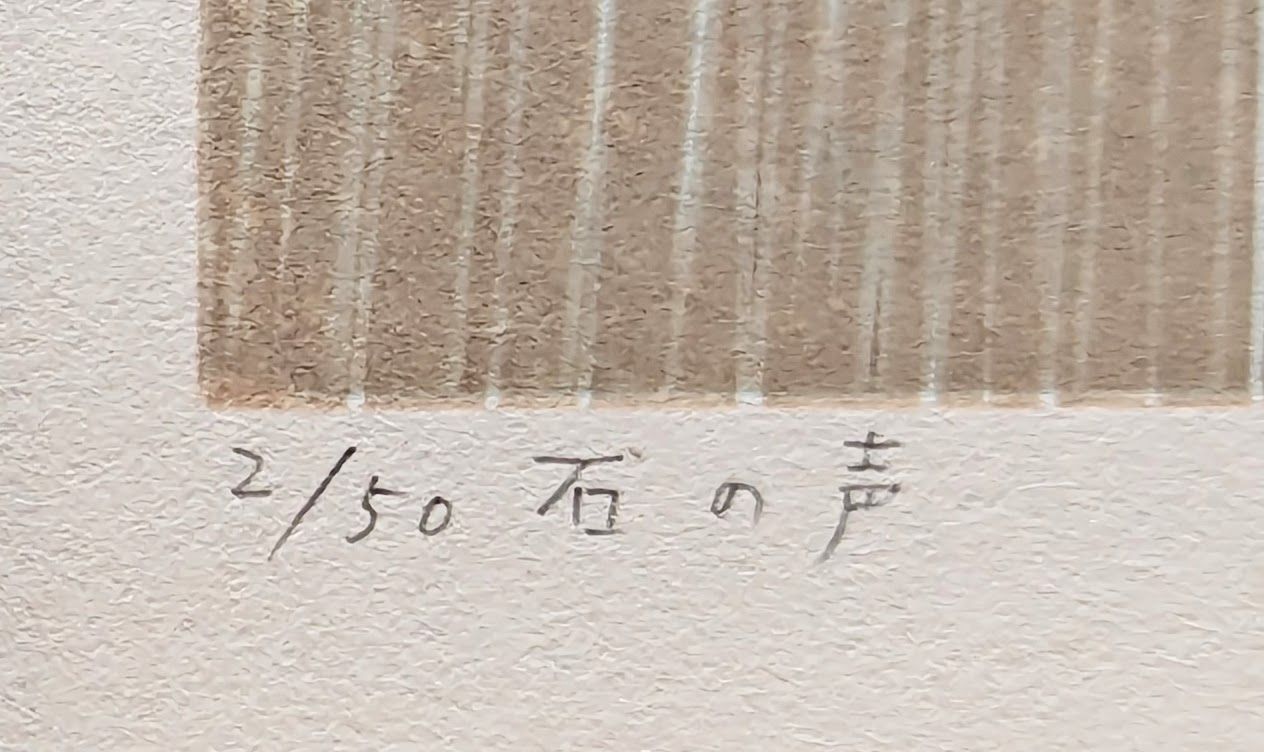 2/50 石の声